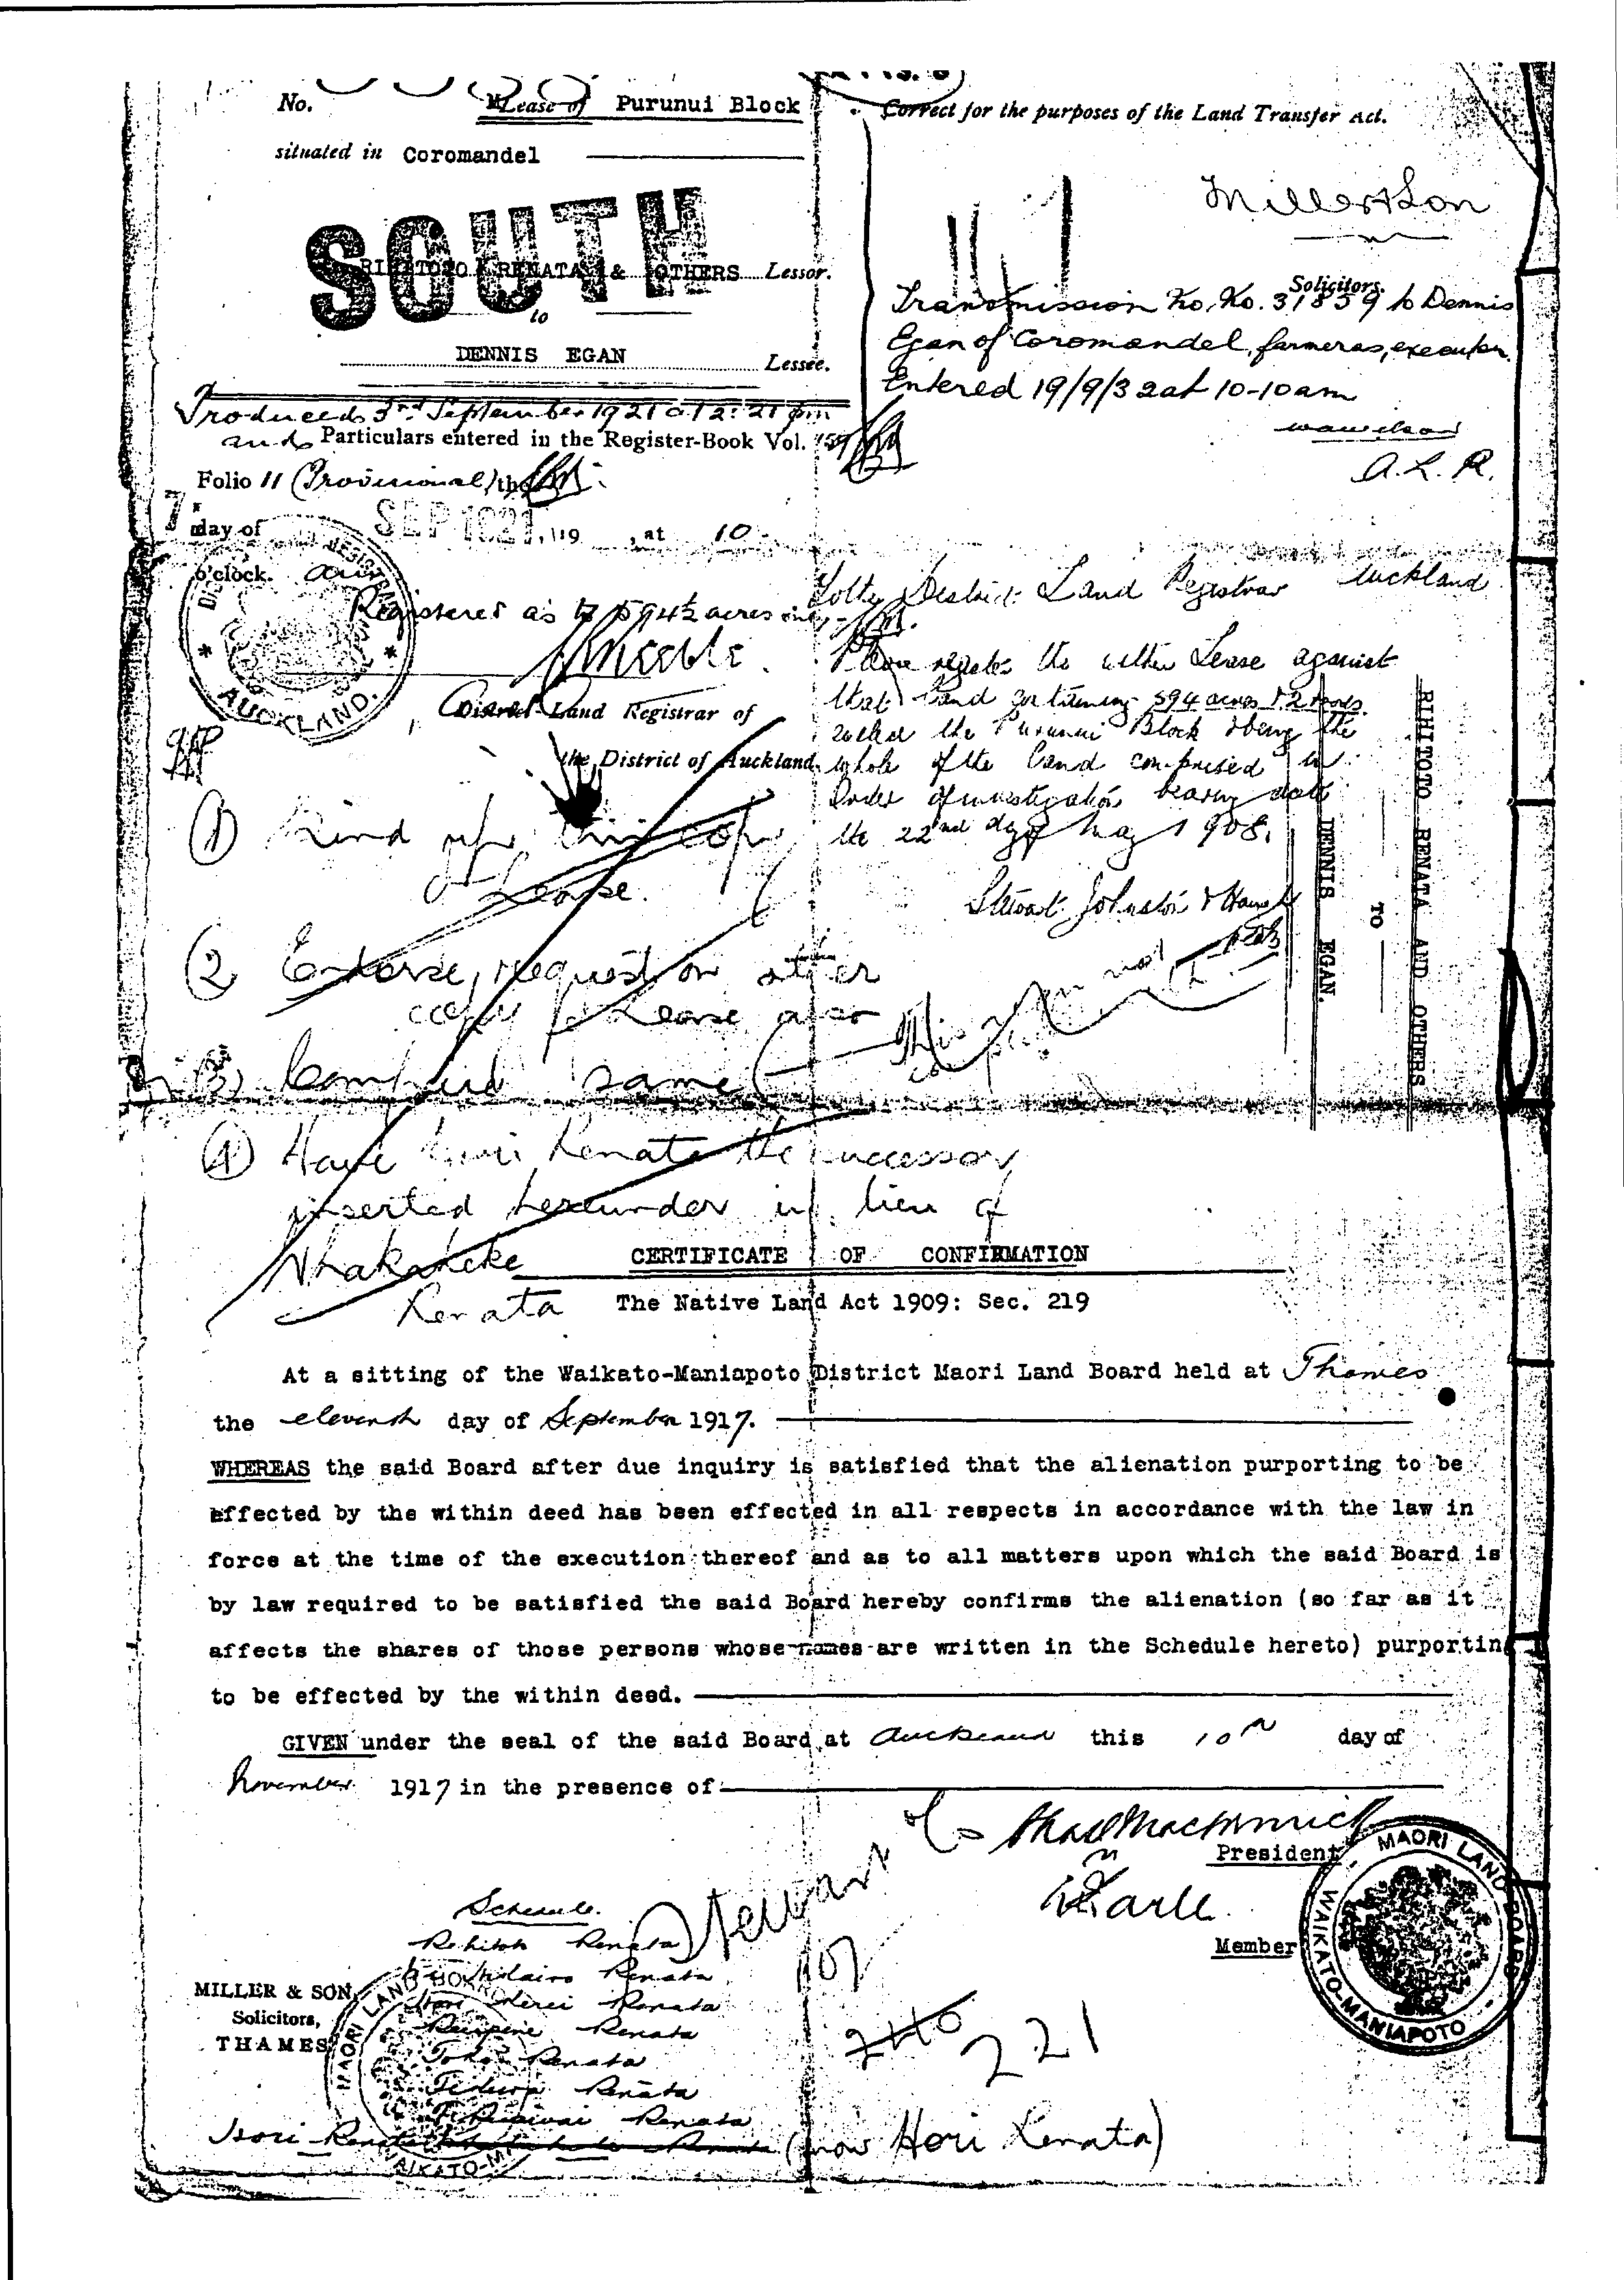 No. Lease of Purunui Block
situated in Coromandel
SOUTH
RIHITOTO RENATA & OTHERS Lessor.
to
DENNIS EGAN Lessee.
Produced 3rd September 1921 at 2:21 pm
and Particulars entered in the Register-Book Vol.
Folio 11 (Provisional) the
7 day of SEP 1921, 19 , at 10
o'clock. am
Registered as to 594½ acres only
District Land Registrar of
the District of Auckland.
AUCKLAND.
Correct for the purposes of the Land Transfer Act.
Miller & Son
Solicitors.
Transmission No. 31859 to Dennis
Egan of Coromandel, farmer as, executor.
Entered 19/9/32 at 10-10 am
A.L.R.
To the District Land Registrar Auckland
Please register the within Lease against
that land containing 594 acres & 2 roods
called the Purunui Block & being the
whole of the land comprised in
Order of investigation bearing date
the 22nd day of May 1908.
Stewart Johnston &
RIHITOTO RENATA AND OTHERS
TO
DENNIS EGAN.
(1) Send up this copy
of Lease.
(2) Endorse request on other
copy of Lease also
(3) same
(4) Have Hori Renata the successor
inserted hereunder in lieu of
Whakaheke
Renata
CERTIFICATE OF CONFIRMATION
The Native Land Act 1909: Sec. 219
At a sitting of the Waikato-Maniapoto District Maori Land Board held at Thames
the eleventh day of September 1917.
WHEREAS the said Board after due inquiry is satisfied that the alienation purporting to be
effected by the within deed has been effected in all respects in accordance with the law in
force at the time of the execution thereof and as to all matters upon which the said Board is
by law required to be satisfied the said Board hereby confirms the alienation (so far as it
affects the shares of those persons whose names are written in the Schedule hereto) purporting
to be effected by the within deed.
GIVEN under the seal of the said Board at Auckland this 10th day of
November 1917 in the presence of
President
Earle
Member
MAORI LAND BOARD
WAIKATO-MANIAPOTO
Stewart
Schedule.
Rihitoto Renata
Renata
Renata
Renata
Renata
Renata
Renata
Hori Renata (now Hori Renata)
MILLER & SON,
Solicitors,
THAMES
107
240
221